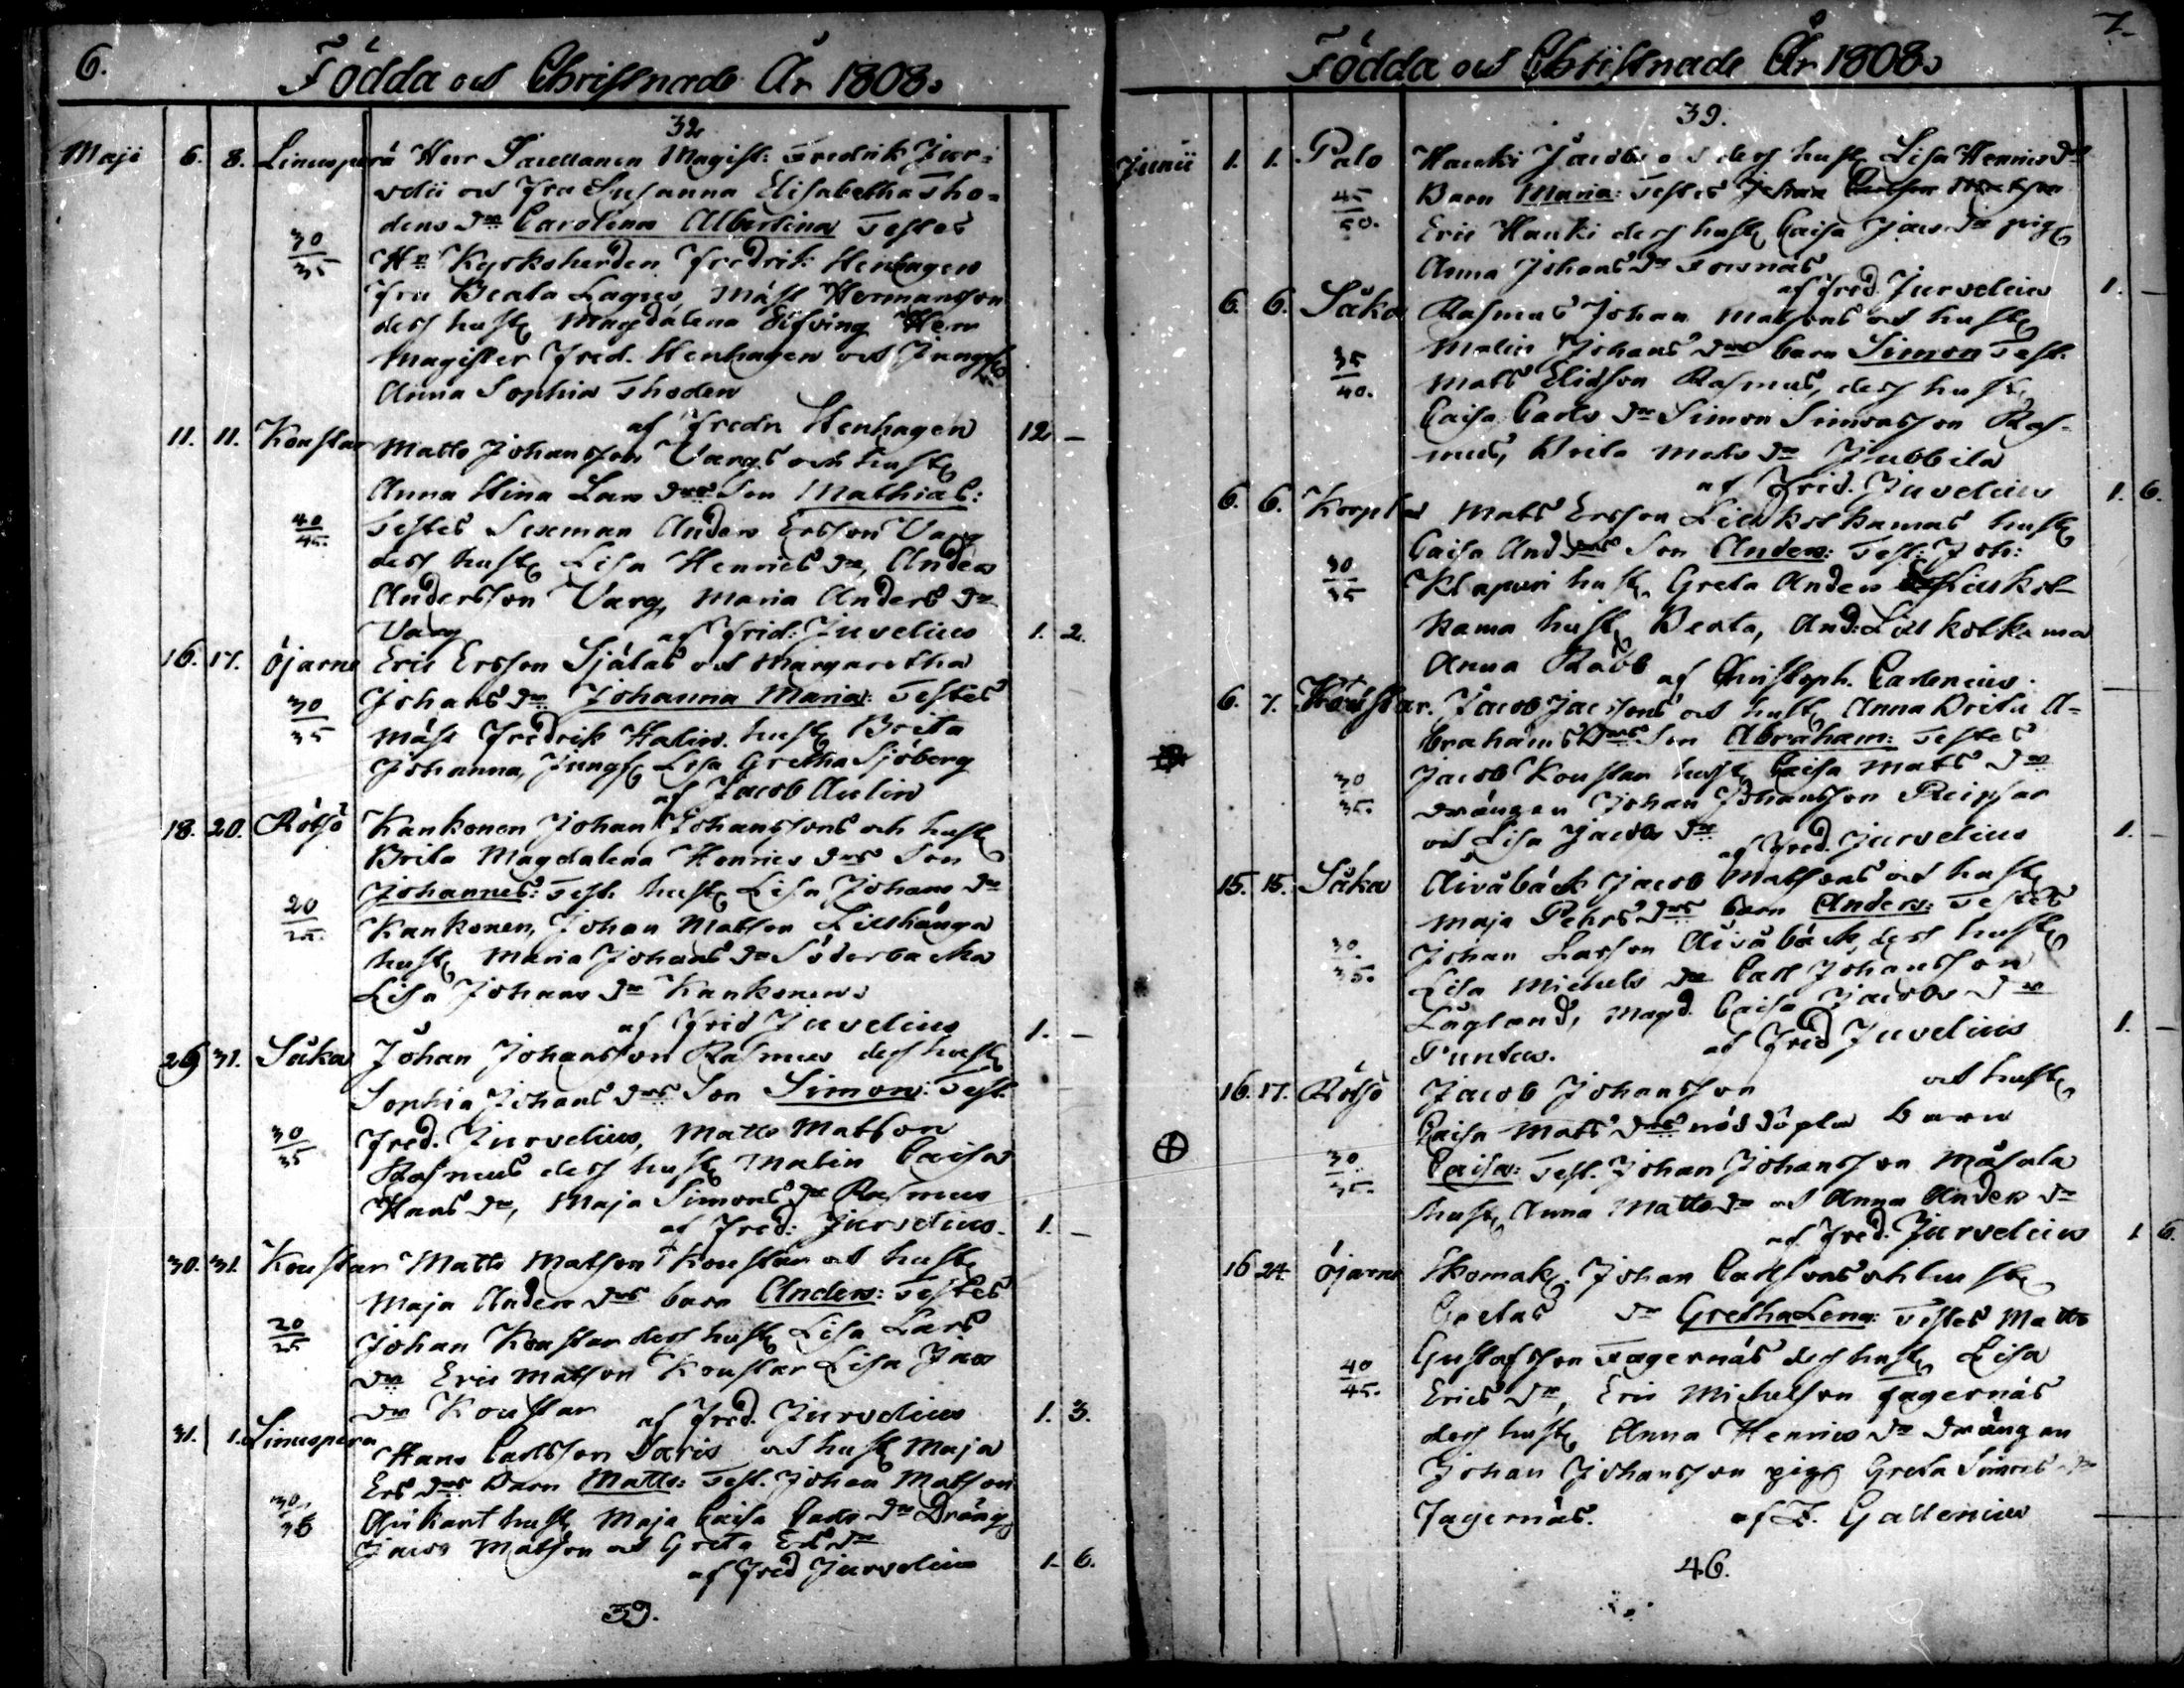 6.
Födda och Christnade År 1808.
32
Maji 6. 8. Linusperä Herr Sacellanen Magist: Fredrik Jur=
velii och Fru Susanna Elisabetha Tho=
dens dr Carolina Albertina Testes
30/35 Hr Kyrkoherden Fredrik Stenhagen
Fru Beata Lagus, Mäst Hermansson
dess hust Magdalena Herr
Magister Fred. Stenhagen och Jungf
Anna Sophia Thoden
af Fredr Stenhagen 12 —
11. 11. Koustar Matts Johansson Vargs och hust
Anna Stina Lars drs Son Mathias:
40/45. Testes Sexman Anders Ersson Varg
dess hust Lisa Henrics dr, Anders
Andersson Varg, Maria Anders dr
Varg af Frid: Juvelius 1. 2.
16. 17. Öjarne Eric Ersson Själas och Margaretha
30/35 Johans dr Johanna Maria: Testes
Mäst Fredrik Halin. hust Brita
Johanna, Jungf Lisa Gretha Sjöberg
af Jacob Aulin
18. 20. Rötsö Kankonen Johan Johanssons och hust
Brita Magdalena Henrics drs Son
20/25. Johannes: Test. hust Lisa Johans dr
Kankonen, Johan Matsson Lillhånga
hust Maria Johans dr Söderbacka
Lisa Johans dr Kankonen.
af Frid Juvelius 1. —
29 31. Såka Johan Johansson Rasmus dess hust
Sophia Johans drs Son Simon: Test.
30/35 Fred. Jurvelius, Matts Matsson
Rasmus dess hust Malin Caisa
Hans dr, Maja Simons dr Rasmus
af Fred: Jurvelius. 1. —
30. 31. Koustar Matts Matsson Koustar och hust
Maja Anders drs barn Anders: Testes
20/25 Johan Koustar dess hust Lisa Lars
dr Eric Matsson Koustar Lisa Jacs
dr Koustar af Fred. Jurvelius 1. 3.
31. 1. Linuspera Hans Carlsson Saris och hust Maja
Ers drs Barn Matts: Test. Johan Matsson
30/35 hust Maja Caisa Carls dr Dräng
Jacob Matsson och Greta Ers dr
af Fred Jurvelius 1. 6.
39.
7.
Födda och Christnade År 1808.
39.
Junii 1. 1. Palo Hauki Jacobs och dess hust Lisa Henrics drs
45/50. Barn Maria: Testes
Eric Hauki dess hust Caisa Jacs dr pig
Anna Johans dr Torsnäs
af Fred. Jurvelius 1. —
6. 6. Såka Rasmus Johan Matsons och hust
35/40. Malin Johans drs barn Simon Test.
Mats Elisson Rasmus, dess hust
Caisa Carls dr Simon Simonsson Ras-
mus, Brita Mats dr Jubbila
af Frid. Juvelius 1. 6.
6. 6. Korpelas Mats Ersson Lillkolkamas hust
30/35 Caisa And drs Son Anders: Test: Joh:
Klapuri hust Greta Anders Lillkol-
kama hust Beata, And: Lillkolkama
Anna Rabb af Christoph. Carlenius. —
6. 7. Koustar. Jacob Jacssons och hust Anna Brita A=
brahams drs Son Abraham: Testes
30/35. Jacob Koustar hust Caisa Mats dr
drängen Johan Johansson Reipsar
och Lisa Jacobs dr af Fred. Jurvelius 1. —
15. 15. Såka Åivåbäck Jacob Matssons och hust
Maja Pehrs drs barn Anders: Testes
30/35. Johan Larsson Åivåbäck, dess hust
Lisa Michels dr Carl Johansson
Lågland, Magd. Caisa Jacobs dr
Puntus. af Fred Juvelius 1. —
16. 17. Rötsö Jacob Johansson och hust
Caisa Mats drs nöddöpta barn
30/35. Caisa: Test. Johan Johansson Måsala
hust Anna Matts dr och Anna Anders dr
af Fred. Jurvelius 1 6.
16 24 Öjarne Skomak. Johan Carlssons och hust
Gretas dr Gretha Lena: Testes Matts
40/45. Gustafsson Fagernäs dess hust Lisa
Erics dr, Eric Michelsson Fagernäs
dess hust Anna Henrics dr Drängen
Johan Johansson pig Greta Simons dr
Fagernäs. af Z. Gallenius —
46.